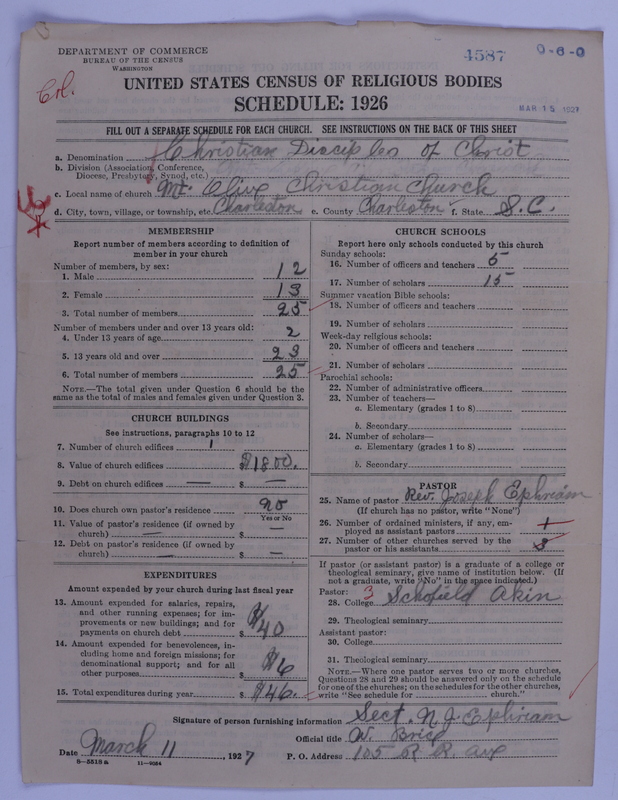 DEPARTMENT OF COMMERCE
BUREAU OF THE CENSUS
WASHINGTON
4587
0-6-0
Col.
UNITED STATES CENSUS OF RELIGIOUS BODIES
SCHEDULE: 1926
MAR 15 1927
FILL OUT A SEPARATE SCHEDULE FOR EACH CHURCH. SEE INSTRUCTIONS ON THE BACK OF THIS SHEET
a. Denomination Christian Disciples of Christ
b. Division (Association, Conference, Diocese, Presbytery, Synod, etc.)
c. Local name of church Mt. Olive Christian Church
d. City, town, village, or township, etc. Charleston e. County Charleston f. State S.C.
MEMBERSHIP
Report number of members according to definition of member in your church
Number of members, by sex:
1. Male 12
2. Female 13
3. Total number of members 25
Number of members under and over 13 years old:
4. Under 13 years of age 2
5. 13 years old and over 23
6. Total number of members 25
NOTE.—The total given under Question 6 should be the same as the total of males and females given under Question 3.
CHURCH BUILDINGS
See instructions, paragraphs 10 to 12
7. Number of church edifices 1
8. Value of church edifices $1800.
9. Debt on church edifices — $ —
10. Does church own pastor's residence no
Yes or No
11. Value of pastor's residence (if owned by church) — $
12. Debt on pastor's residence (if owned by church) — $ —
EXPENDITURES
Amount expended by your church during last fiscal year
13. Amount expended for salaries, repairs, and other running expenses; for improvements or new buildings; and for payments on church debt $ $40
14. Amount expended for benevolences, including home and foreign missions; for denominational support; and for all other purposes $ $6
15. Total expenditures during year $ $46.
CHURCH SCHOOLS
Report here only schools conducted by this church
Sunday schools:
16. Number of officers and teachers 5
17. Number of scholars 15
Summer vacation Bible schools:
18. Number of officers and teachers
19. Number of scholars
Week-day religious schools:
20. Number of officers and teachers
21. Number of scholars
Parochial schools:
22. Number of administrative officers
23. Number of teachers—
a. Elementary (grades 1 to 8)
b. Secondary
24. Number of scholars—
a. Elementary (grades 1 to 8)
b. Secondary
PASTOR
25. Name of pastor Rev. Joseph Ephriam
(If church has no pastor, write "None")
26. Number of ordained ministers, if any, employed as assistant pastors
27. Number of other churches served by the pastor or his assistants 3
If pastor (or assistant pastor) is a graduate of a college or theological seminary, give name of institution below. (If not a graduate, write "No" in the space indicated.)
Pastor: 3
28. College Schofield Akin
29. Theological seminary
Assistant pastor:
30. College
31. Theological seminary
NOTE.—Where one pastor serves two or more churches, Questions 28 and 29 should be answered only on the schedule for one of the churches; on the schedules for the other churches, write "See schedule for church."
Signature of person furnishing information Sect. N. J. Ephriam
Official title
Date March 11, 1927 P. O. Address 105 R R. ave
8—5518a 11—9054